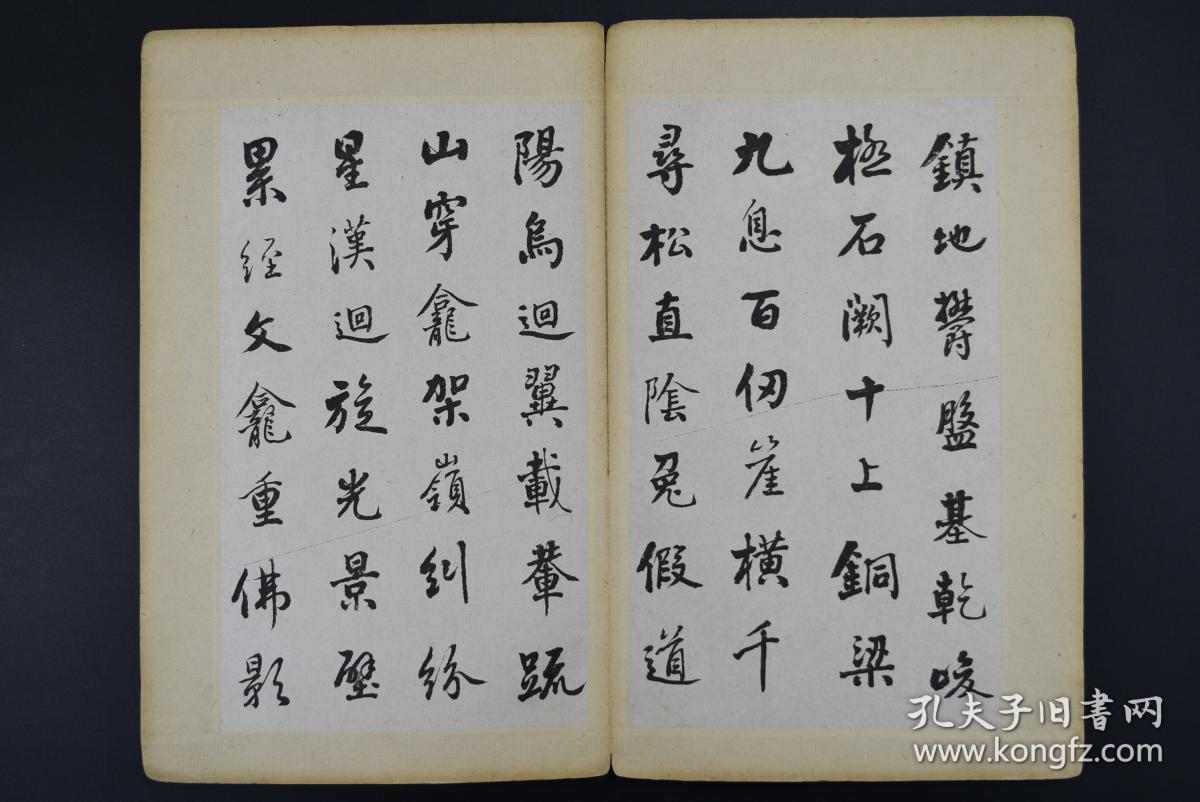 鎮地欝盤基乾峻
極石闕十上銅梁
九息百仞崖橫千
尋松直陰兔假道
陽烏迴翼載輦疏
山穿龕架嶺糾紛
星漢迴旋光景壁
累經文龕重佛影
孔夫子旧書网
www.kongfz.com